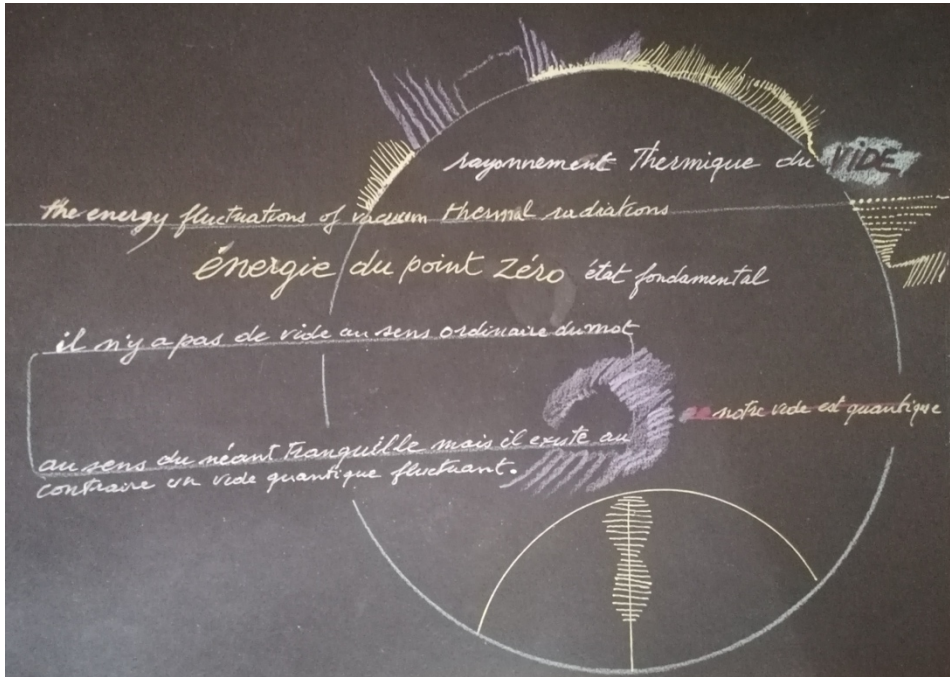 rayonnement Thermique du VIDE
the energy fluctuations of vacuum thermal radiations
énergie du point zéro état fondamental
il n'y a pas de vide au sens ordinaire du mot
notre vide est quantique
au sens du néant tranquille mais il existe au
contraire un vide quantique fluctuant.